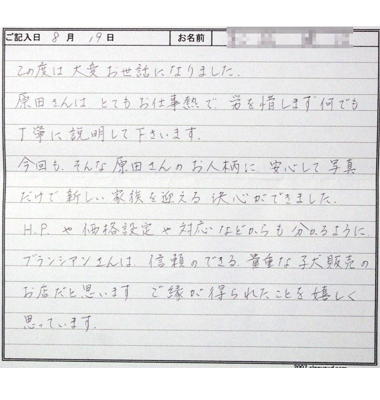 ご記入日 8 月 19 日 お名前
この度は大変お世話になりました。
原田さんは とてもお仕事熱で 労を惜しまず何でも
丁寧に説明して下さいます。
今回も、そんな原田さんのお人柄に 安心して写真
だけで新しい家族を迎える決心ができました。
H.P. や価格設定や対応などからも分かるように
ブランシアンさんは、信頼のできる貴重な子犬販売の
お店だと思います ご縁が得られたことを嬉しく
思っています。